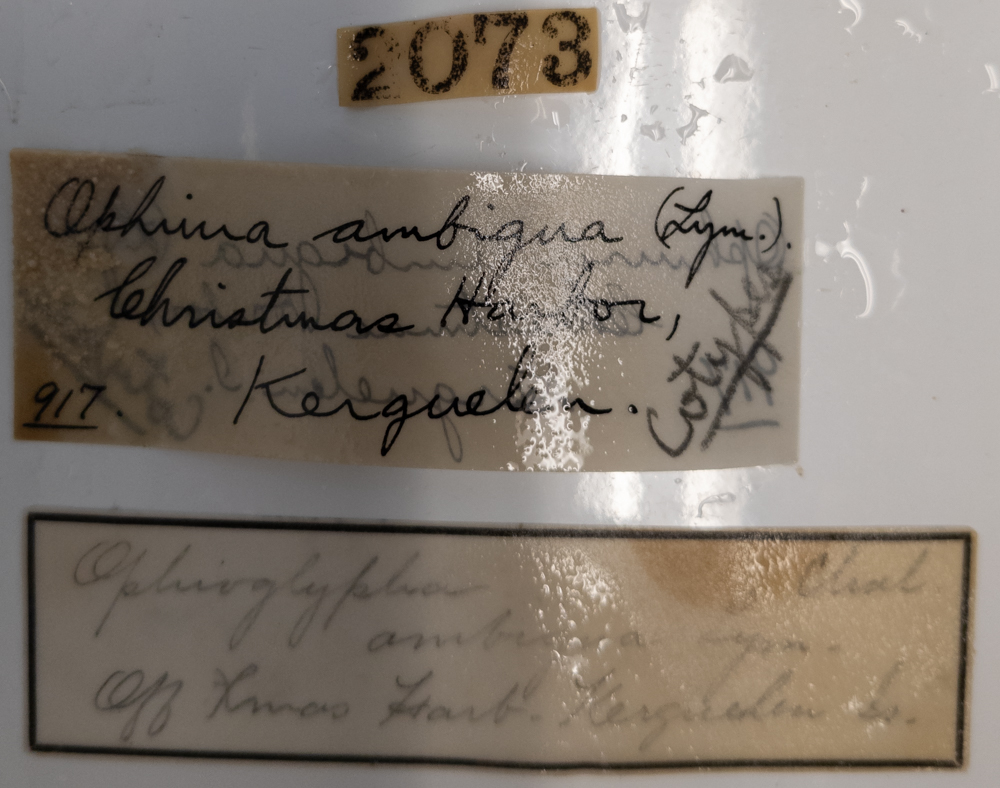 2073
Ophiura ambigua (Lym.).
Christmas Harbor,
Kerguelen.
917.
Cotypes
Ophioglypha Chal
ambigua Lym.
Off Xmas Harb. Kerguelen Is.